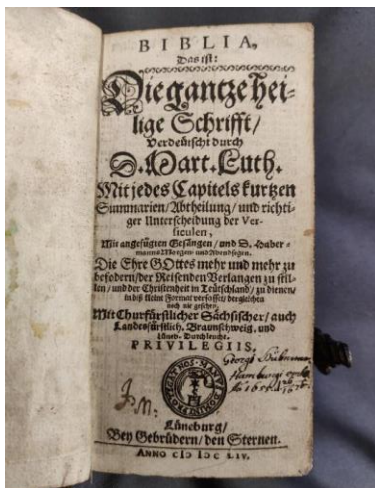 BIBLIA,
Das ist:
Die gantze Hei-
lige Schrifft/
Verdeütscht durch
D. Mart. Luth.
Mit jedes Capitels kurtzen
Summarien/Abtheilung/und richti-
ger Unterscheidung der Ver-
siculen,
Mit angefügten Gesängen/und D. Haber-
manns Morgen- und Abendsegen.
Die Ehre GOttes mehr und mehr zu
befodern/der Reisenden Verlangen zu stil-
len/und der Christenheit in Teütschland/zu dienen/
in diß kleine Format verfasset/dergleichen
noch nie gesehen.
Mit Churfürstlicher Sächsischer/auch
Landesfürstlich. Braunschweig. und
Lüneb. Durchleucht.
PRIVILEGIIS.
Lüneburg/
Bey Gebrüdern/den Sternen.
ANNO CIↃ IↃC LIV.